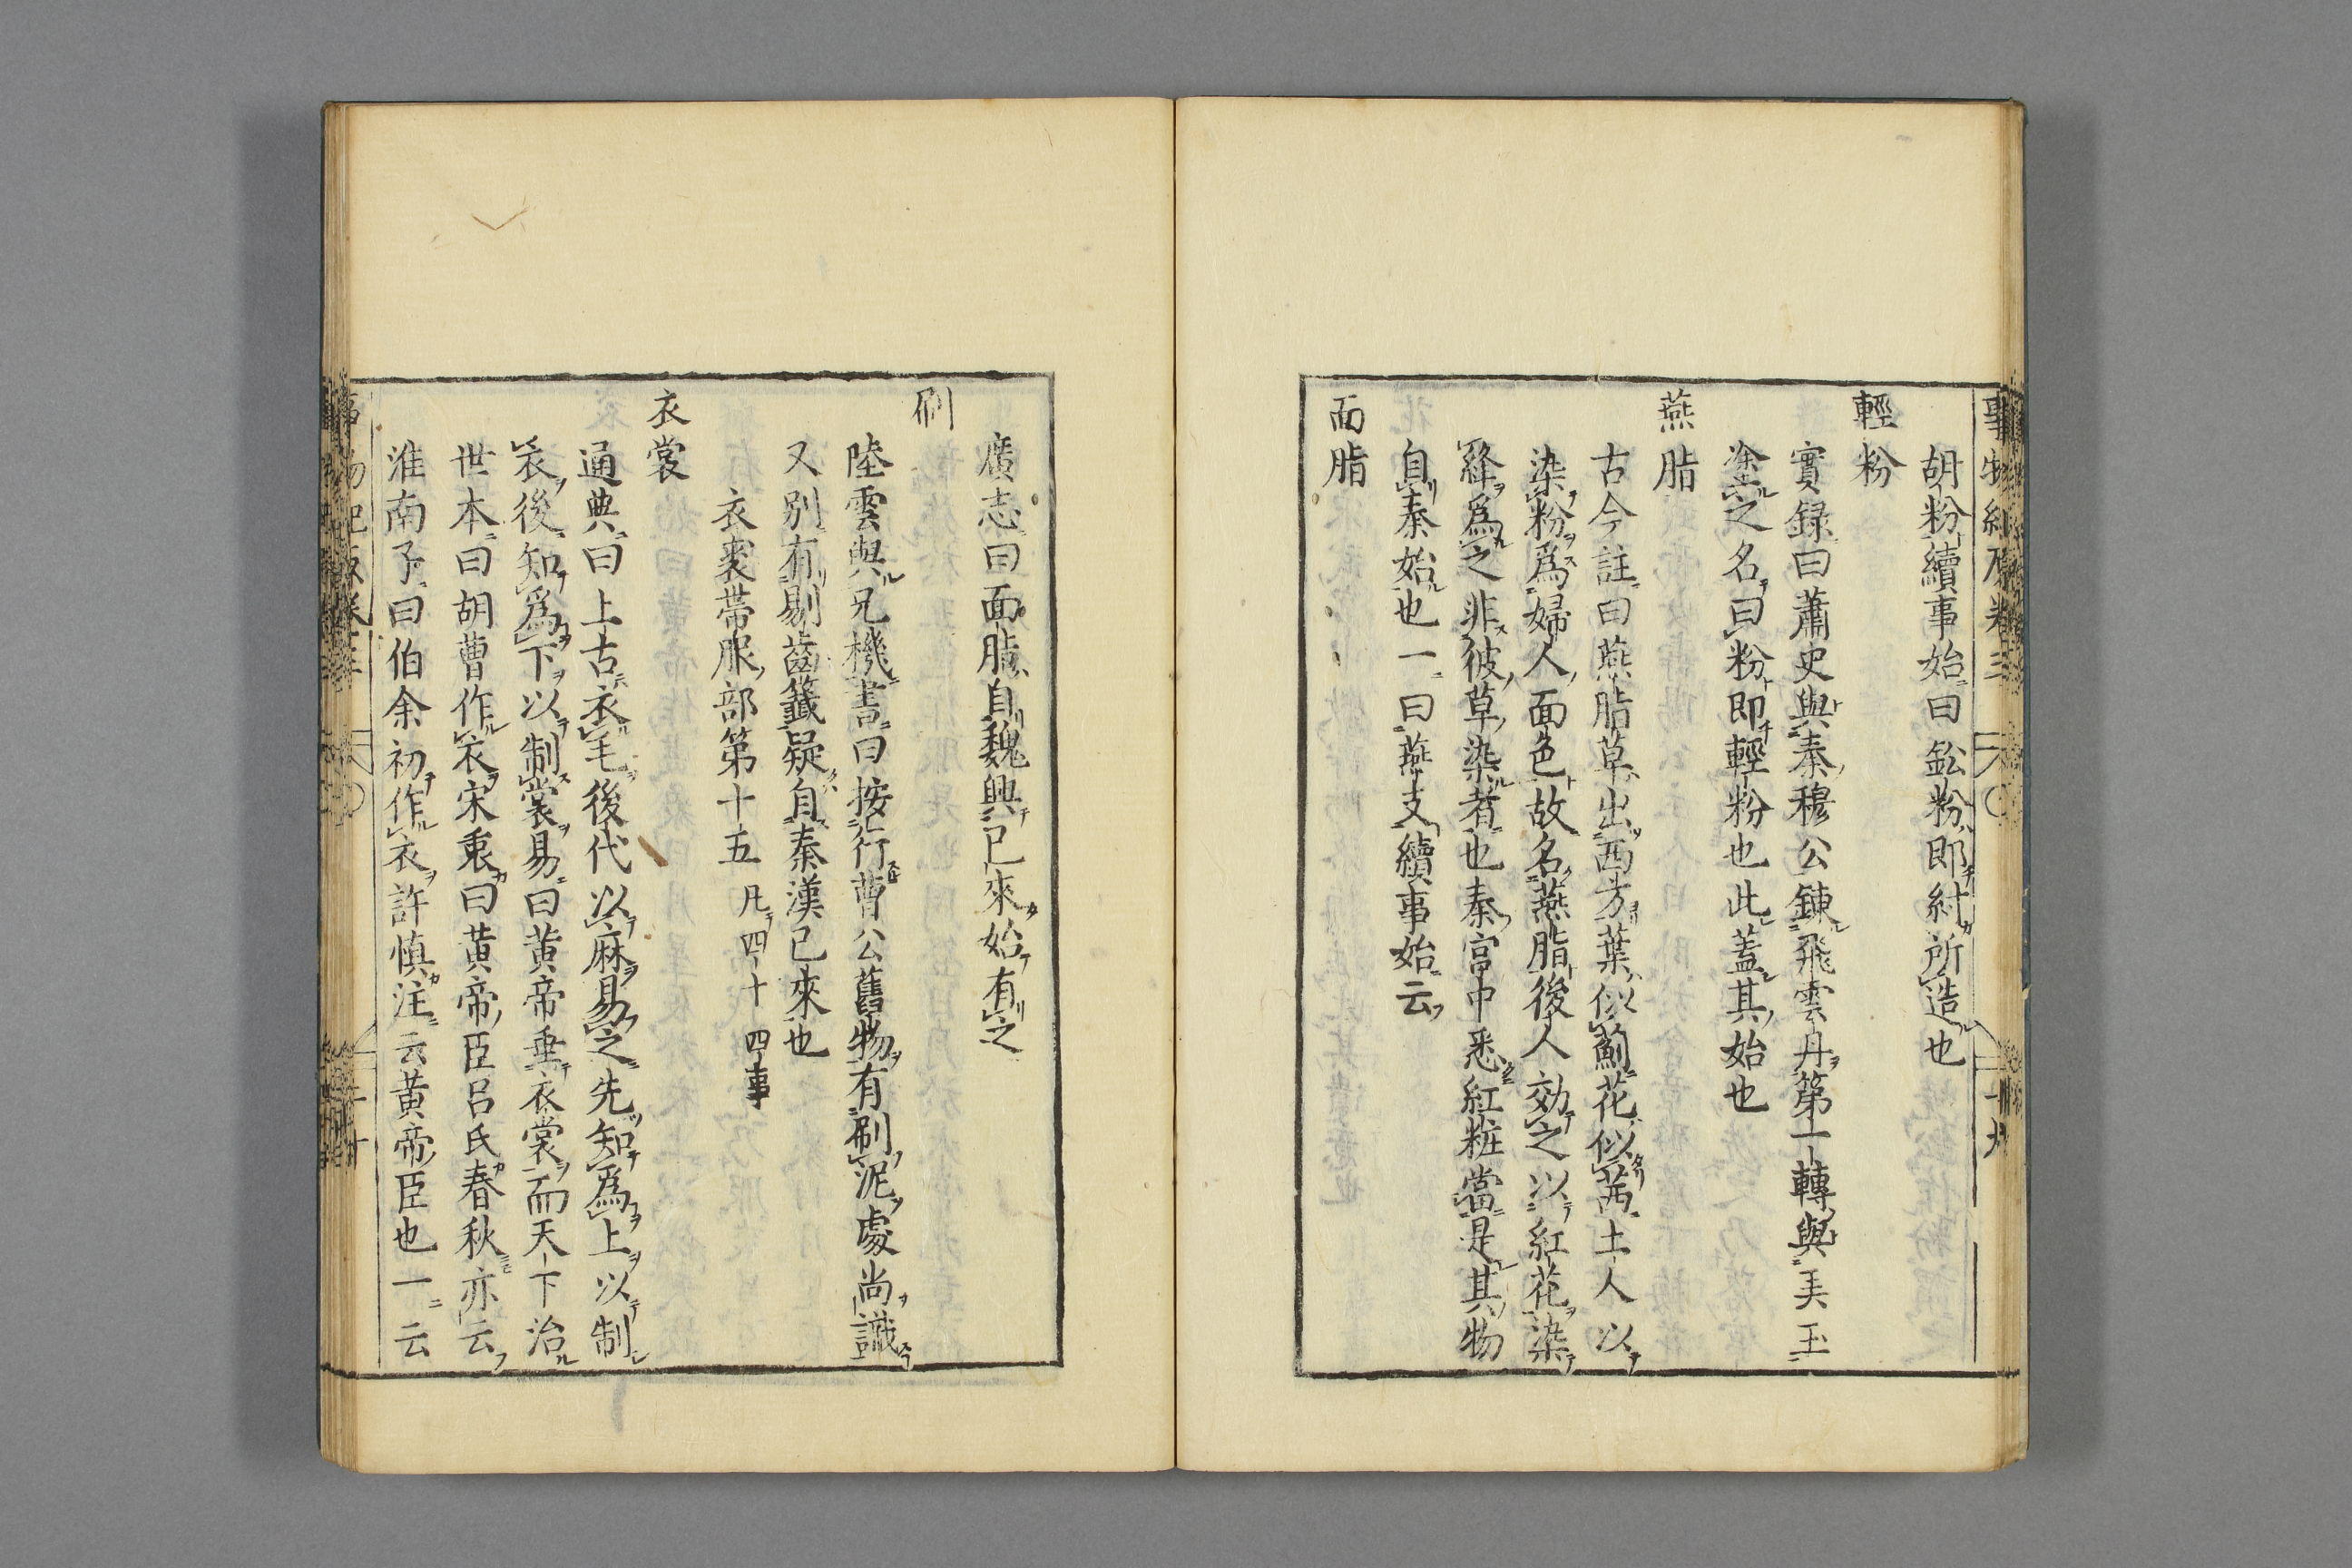 事物紀原卷三 二十九
胡粉續事始曰鈆粉即紂所造也
輕粉
實録曰蕭史與秦穆公鍊飛雲丹第一轉與美玉
塗之名曰粉即輕粉也此蓋其始也
燕脂
古今註曰燕脂草出西方葉似薊花似茜土人以
染粉爲婦人面色故名燕脂後人効之以紅花染
絳爲之非彼草染者也秦宮中悉紅粧當是其物
自秦始也一曰燕支續事始云
面脂
廣志曰面脂自魏興已來始有之
刷
陸雲與兄機書曰按行曹公舊物有刷泥處尚識
又别有剔齒籤疑自秦漢已來也
衣裘帶服部第十五 凡四十四事
衣裳
通典曰上古衣毛後代以麻易之先知爲上以制
衣後知爲下以制裳易曰黄帝垂衣裳而天下治
世本曰胡曹作衣宋衷曰黄帝臣呂氏春秋亦云
淮南子曰伯余初作衣許慎注云黄帝臣也一云